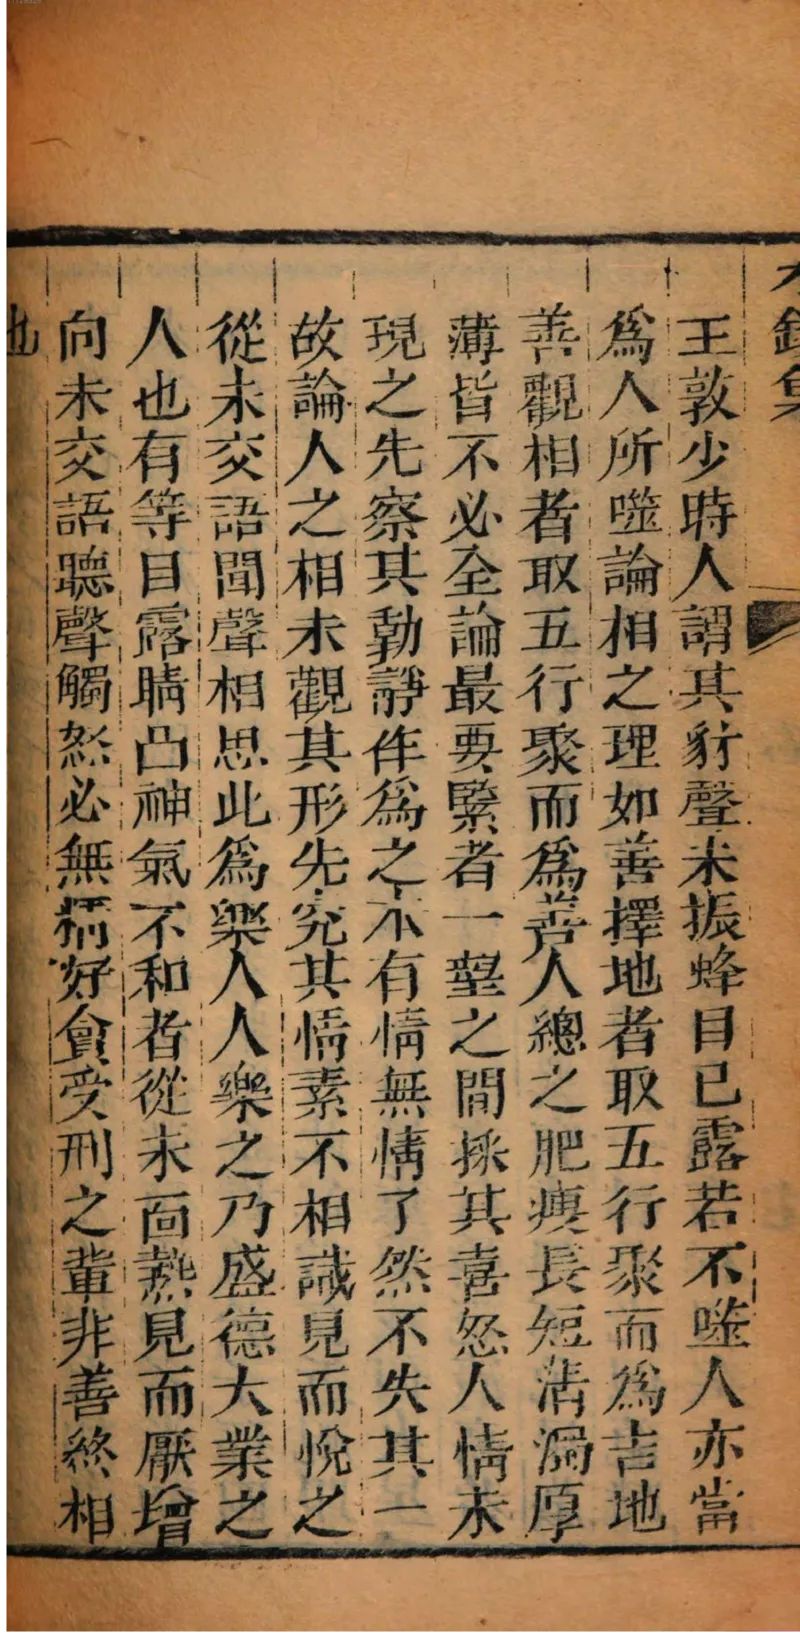 王敦少時人謂其豺聲未振蜂目已露若不噬人亦當
爲人所噬論相之理如善擇地者取五行聚而爲吉地
善觀相者取五行聚而爲善人總之肥瘦長短清濁厚
薄皆不必全論最要緊者一望之間採其喜怒人情未
現之先察其動靜作爲之本有情無情了然不失其一
故論人之相未觀其形先究其情素不相識見而悅之
從未交語聞聲相思此爲樂人人樂之乃盛德大業之
人也有等目露睛凸神氣不和者從未面熱見而厭增
向未交語聽聲觸怒必無病好貪受刑之輩非善終相
也